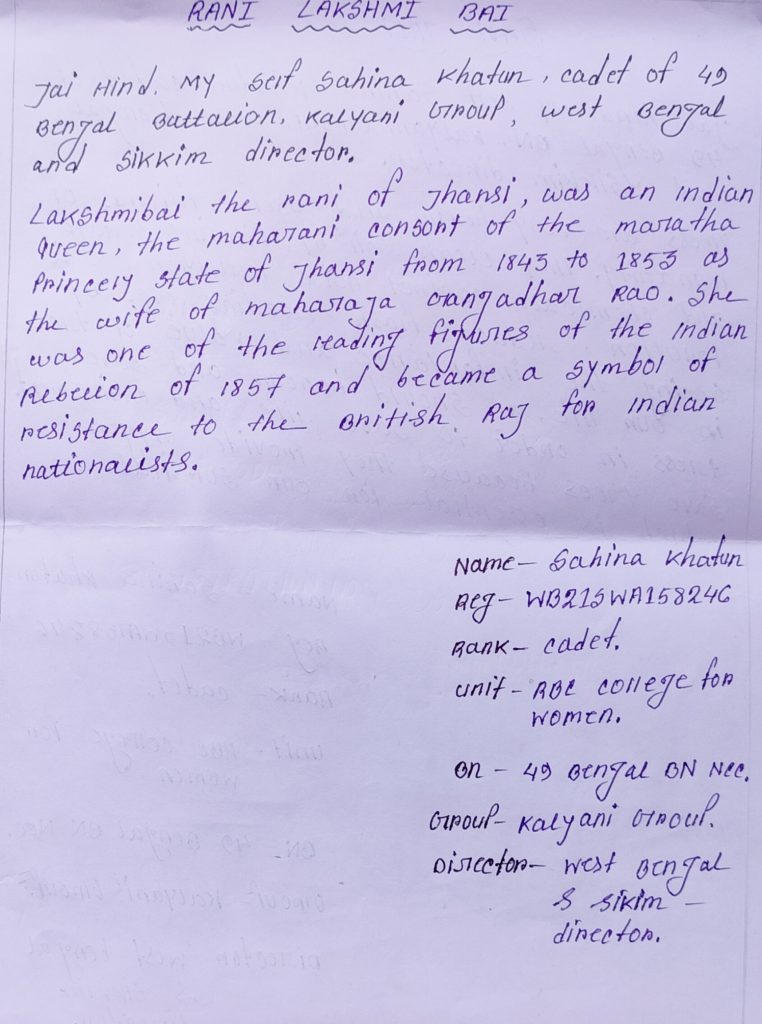 RANI LAKSHMI BAI
Jai Hind. My Self Sahina Khatun, cadet of 49
Bengal Battalion, Kalyani Group, West Bengal
and Sikkim director.
Lakshmibai the rani of Jhansi, was an indian
Queen, the maharani consort of the maratha
Princely state of Jhansi from 1843 to 1853 as
the wife of maharaja Gangadhar Rao. She
was one of the leading figures of the indian
Rebelion of 1857 and became a symbol of
resistance to the British Raj for indian
nationalists.
Name- Sahina Khatun
Reg- WB21SWA158246
Rank- cadet.
unit- RBC college for
women.
BN - 49 Bengal BN NCC.
Group- Kalyani Group.
Director- West Bengal
& Sikim -
director.